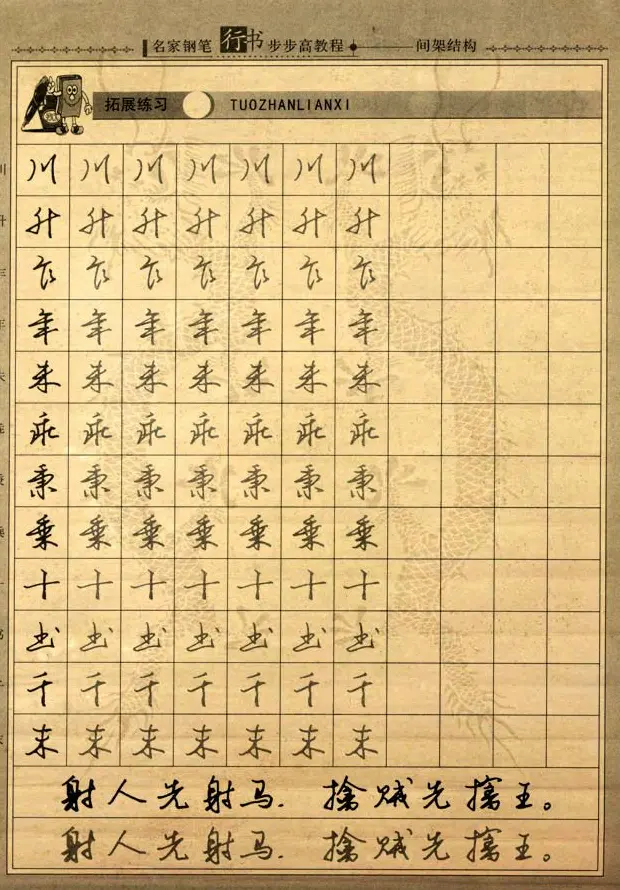 名家钢笔 行书 步步高教程 间架结构
拓展练习 TUOZHANLIANXI
川 川 川 川 川 川 川
升 升 升 升 升 升 升
乍 乍 乍 乍 乍 乍 乍
年 年 年 年 年 年 年
朱 朱 朱 朱 朱 朱 朱
乖 乖 乖 乖 乖 乖 乖
秉 秉 秉 秉 秉 秉 秉
乘 乘 乘 乘 乘 乘 乘
十 十 十 十 十 十 十
书 书 书 书 书 书 书
千 千 千 千 千 千 千
末 末 末 末 末 末 末
射人先射马,擒贼先擒王。
射人先射马,擒贼先擒王。